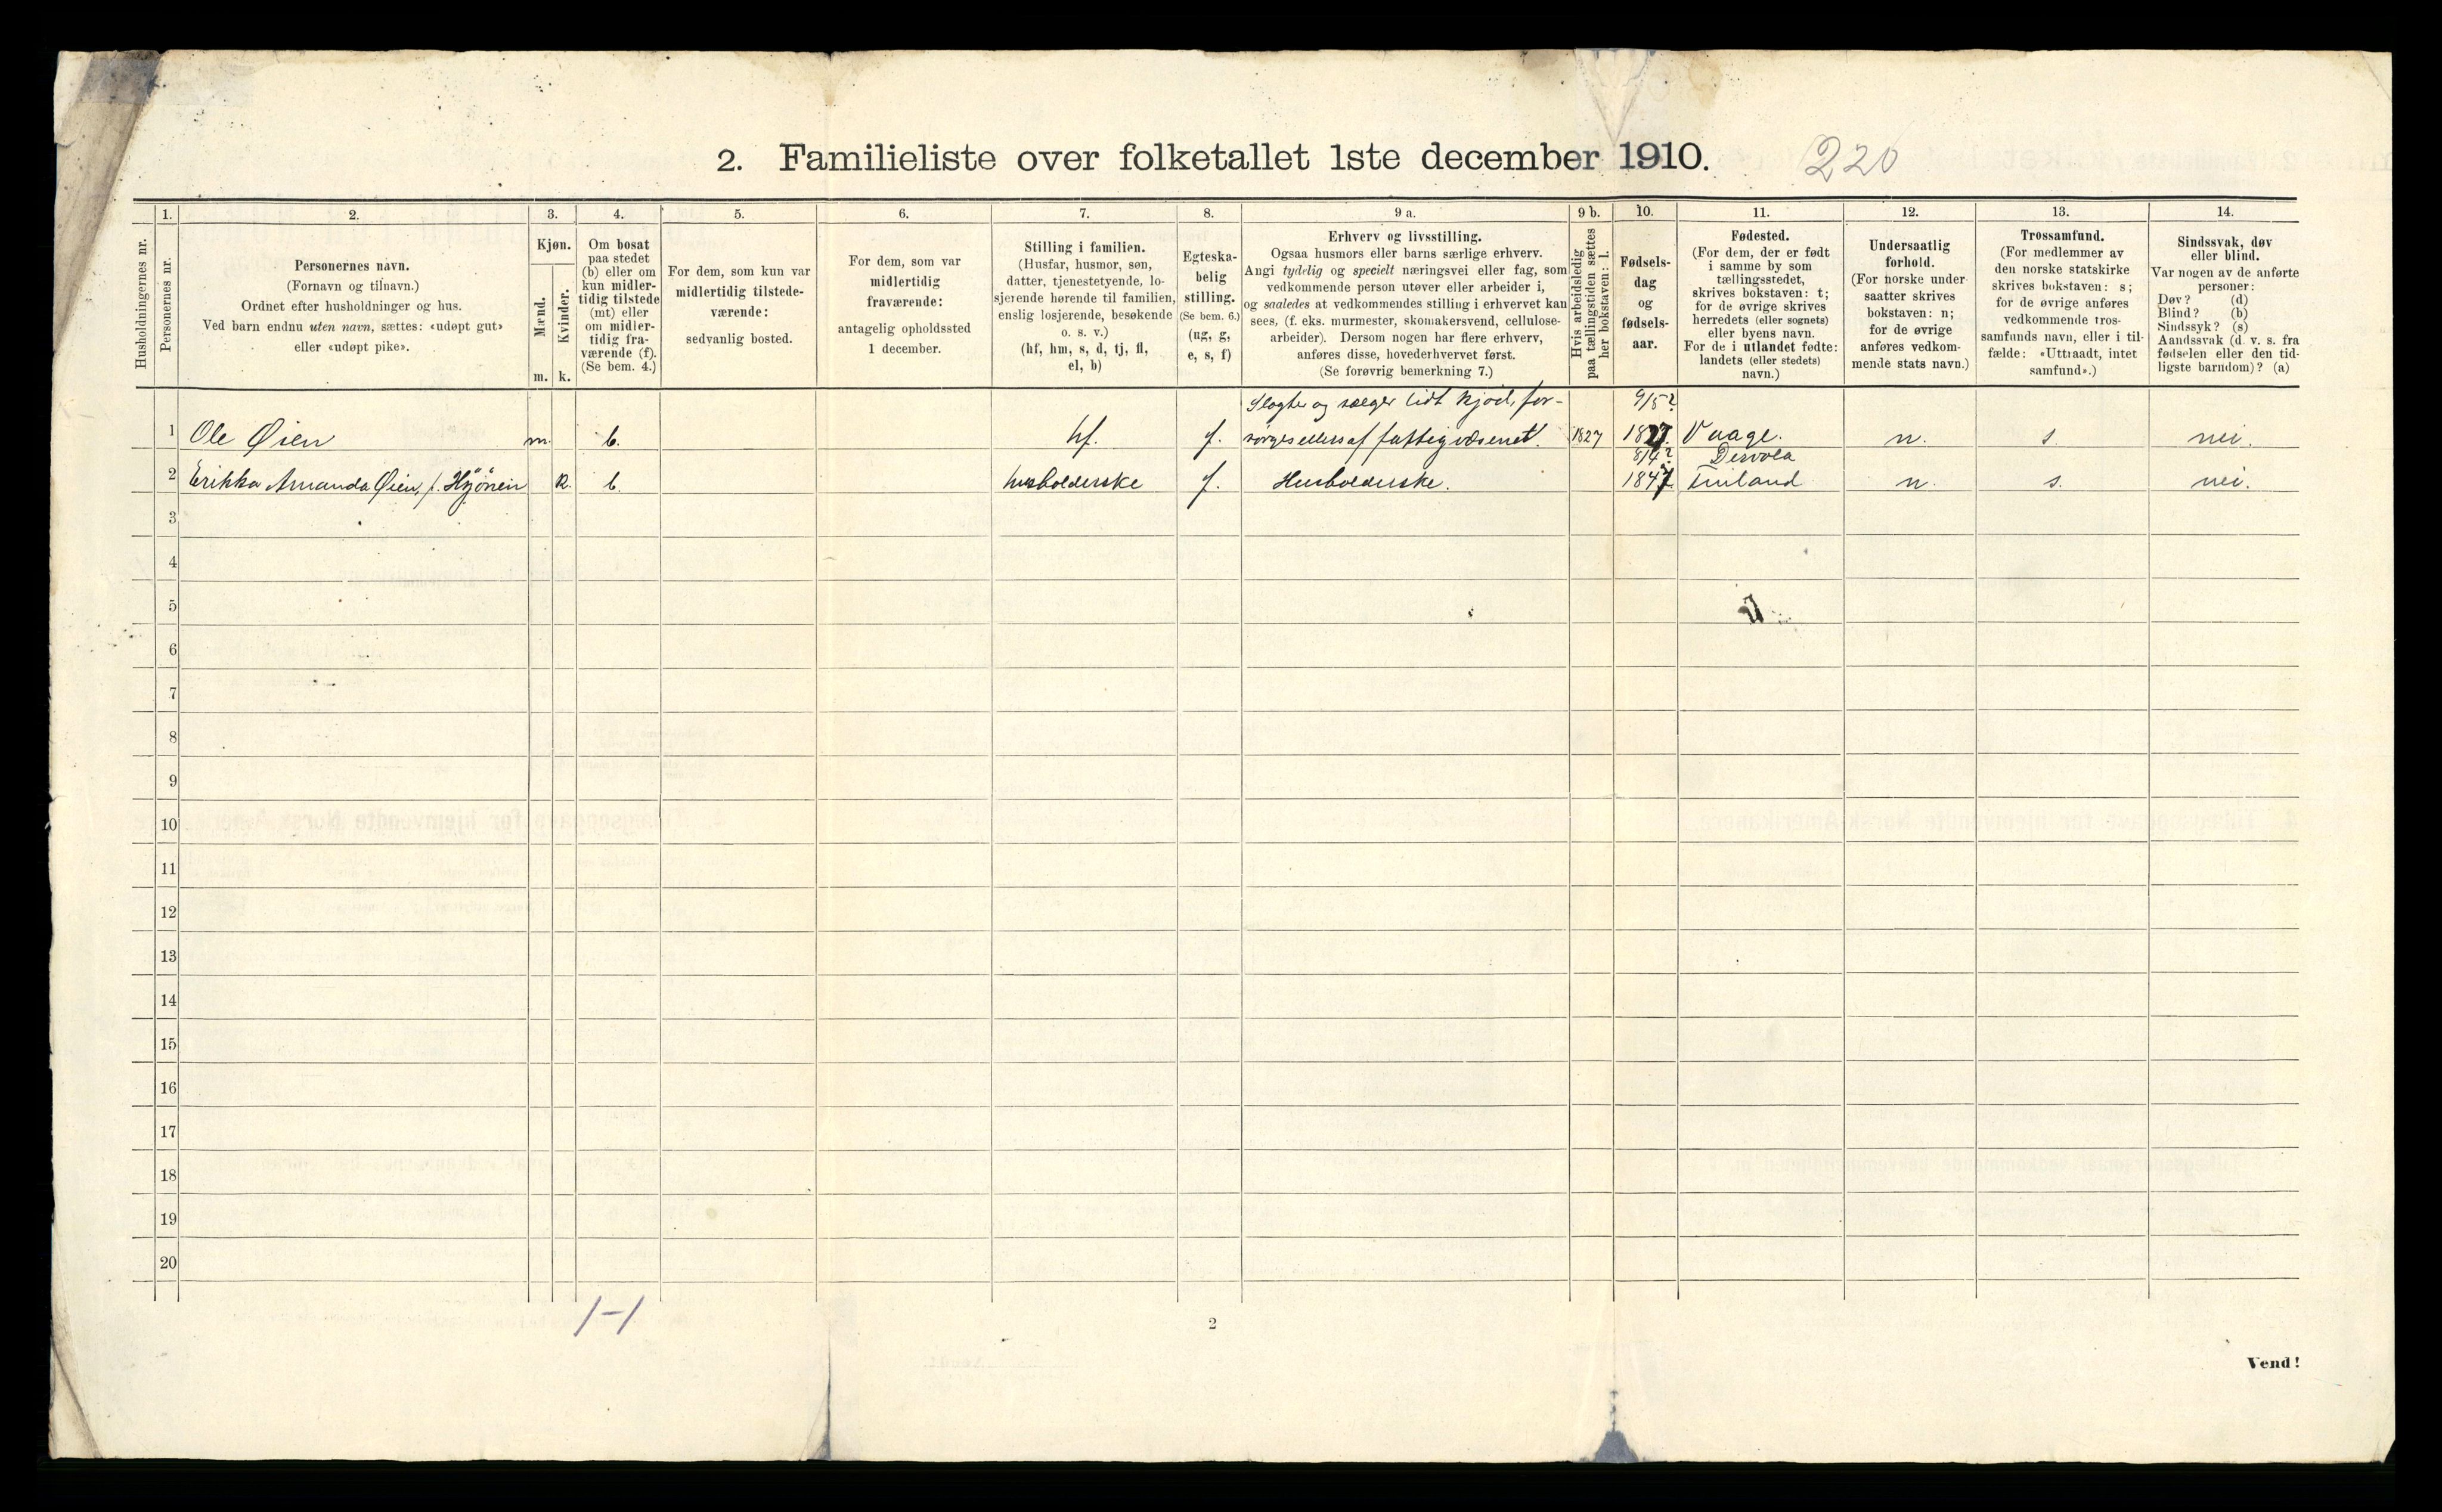 2. Familieliste over folketallet 1ste december 1910. 220
Husholdningernes nr.
1.
Personernes nr.
2.
Personernes navn.
(Fornavn og tilnavn.)
Ordnet efter husholdninger og hus.
Ved barn endnu uten navn, sættes: «udøpt gut»
eller «udøpt pike».
3.
Kjøn.
Mænd.
m.
Kvinder.
k.
4.
Om bosat
paa stedet
(b) eller om
kun midler-
tidig tilstede
(mt) eller
om midler-
tidig fra-
værende (f).
(Se bem. 4.)
5.
For dem, som kun var
midlertidig tilstede-
værende:
sedvanlig bosted.
6.
For dem, som var
midlertidig
fraværende:
antagelig opholdssted
1 december.
7.
Stilling i familien.
(Husfar, husmor, søn,
datter, tjenestetyende, lo-
sjerende hørende til familien,
enslig losjerende, besøkende
o. s. v.)
(hf, hm, s, d, tj, fl,
el, b)
8.
Egteska-
belig
stilling.
(Se bem. 6.)
(ug, g,
e, s, f)
9 a.
Erhverv og livsstilling.
Ogsaa husmors eller barns særlige erhverv.
Angi tydelig og specielt næringsvei eller fag, som
vedkommende person utøver eller arbeider i,
og saaledes at vedkommendes stilling i erhvervet kan
sees, (f. eks. murmester, skomakersvend, cellulose-
arbeider). Dersom nogen har flere erhverv,
anføres disse, hovederhvervet først.
(Se forøvrig bemerkning 7.)
9 b.
Hvis arbeidsledig
paa tællingstiden sættes
her bokstaven: l.
10.
Fødsels-
dag
og
fødsels-
aar.
11.
Fødested.
(For dem, der er født
i samme by som
tællingsstedet,
skrives bokstaven: t;
for de øvrige skrives
herredets (eller sognets)
eller byens navn.
For de i utlandet fødte:
landets (eller stedets)
navn.)
12.
Undersaatlig
forhold.
(For norske under-
saatter skrives
bokstaven: n;
for de øvrige
anføres vedkom-
mende stats navn.)
13.
Trossamfund.
(For medlemmer av
den norske statskirke
skrives bokstaven: s;
for de øvrige anføres
vedkommende tros-
samfunds navn, eller i til-
fælde: «Uttraadt, intet
samfund».)
14.
Sindssvak, døv
eller blind.
Var nogen av de anførte
personer:
Døv? (d)
Blind? (b)
Sindssyk? (s)
Aandssvak (d. v. s. fra
fødselen eller den tid-
ligste barndom)? (a)
Slagter og sælger lidt kjød, for- 9/5?
1 Ole Øien m. b. hf. f. sørges ellers af fattigvæsenet. 1827 1827. Vaage. n. s. nei.
8/4? Dervola
2 Erikka Amanda Øien, f. Hyönen k. b. husholderske f. Husholderske. 1847 Finland n. s. nei.
3
4
5
6
7
8
9
10
11
12
13
14
15
16
17
18
19
20
1-1
2
Vend!